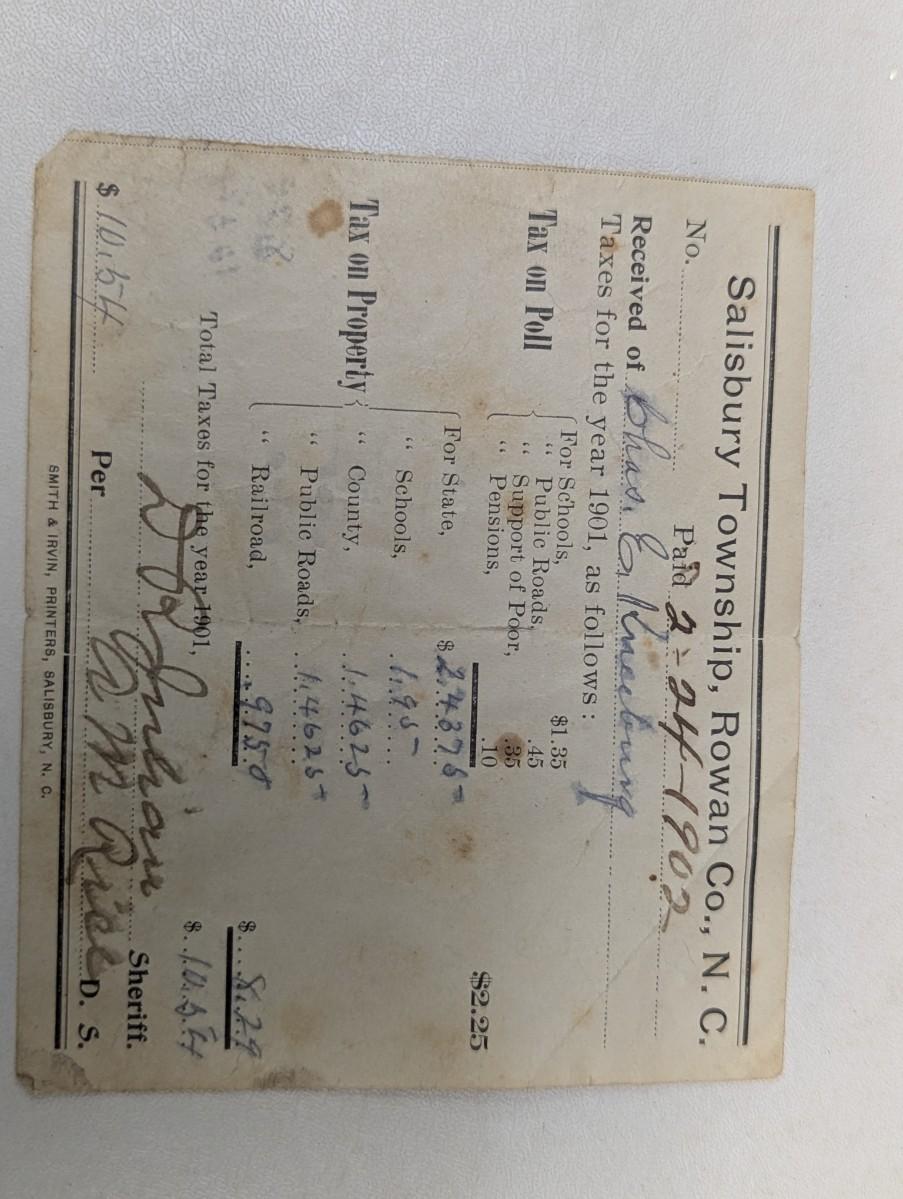 Salisbury Township, Rowan Co., N. C.
No. Paid 2-24-1902
Received of Chas. E.
Taxes for the year 1901, as follows:
Tax on Poll
For Schools, $1.35
" Public Roads, .45
" Support of Poor, .35
" Pensions, .10
$2.25
Tax on Property
For State, $2.4375
" Schools, 1.95
" County, 1.4625
" Public Roads, 1.4625
" Railroad, .9750
$ 8.29
Total Taxes for the year 1901, $ 10.54
D R Julian Sheriff.
$ 10.54 Per M Rice D. S.
SMITH & IRVIN, PRINTERS, SALISBURY, N. C.